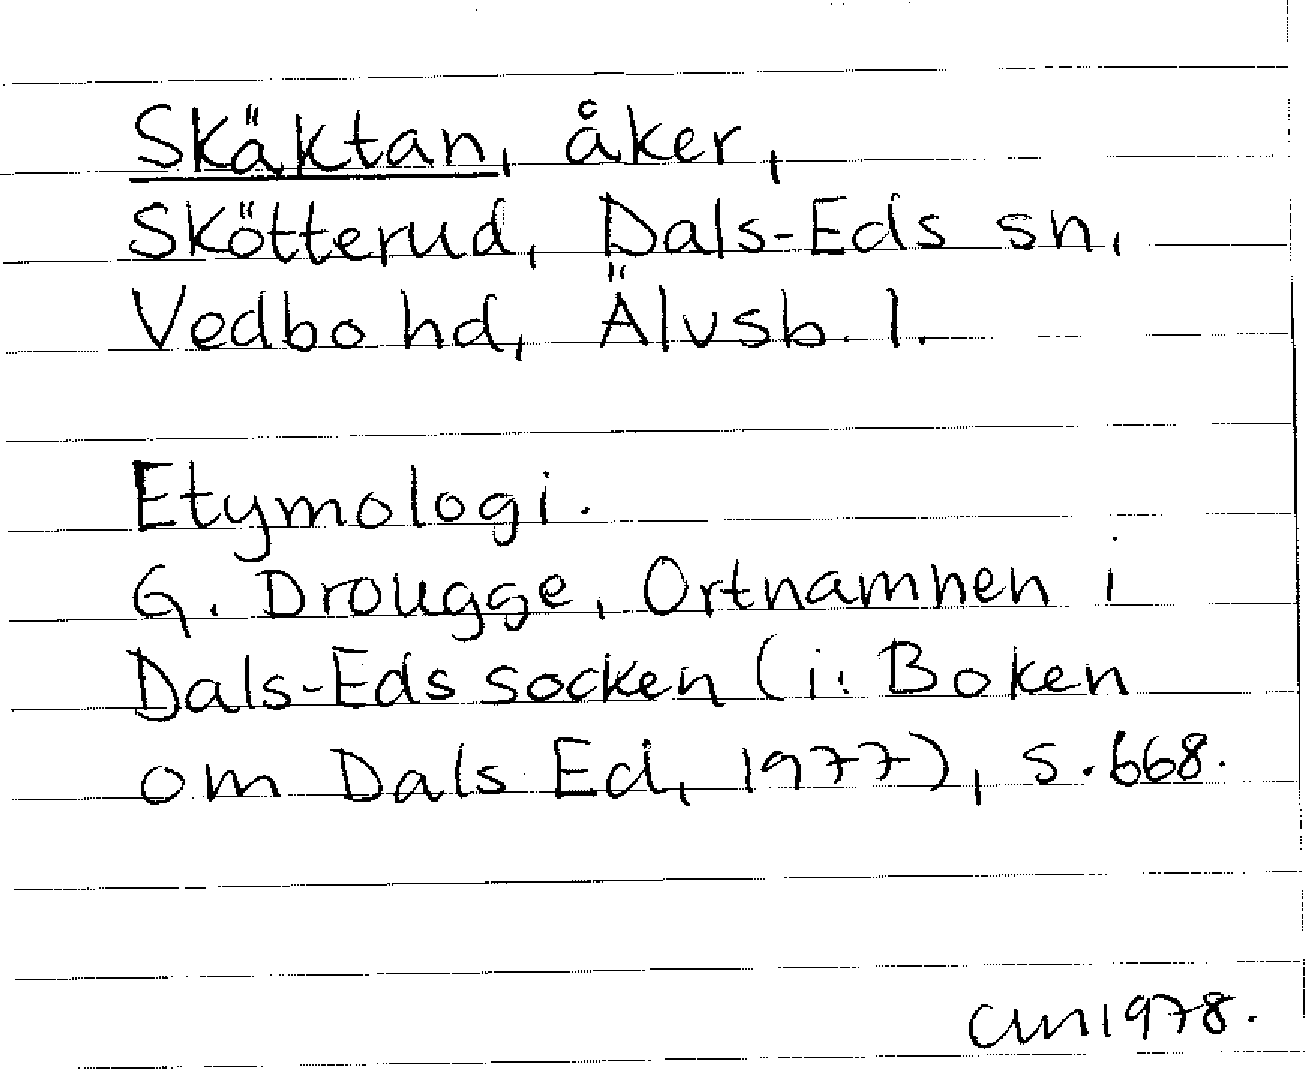 Skäktan, åker,
Skötterud, Dals-Eds sn,
Vedbo hd, Älvsb. l.
Etymologi.
G. Drougge, Ortnamnen i
Dals-Eds socken (i: Boken
om Dals Ed, 1977), s. 668.
1978.